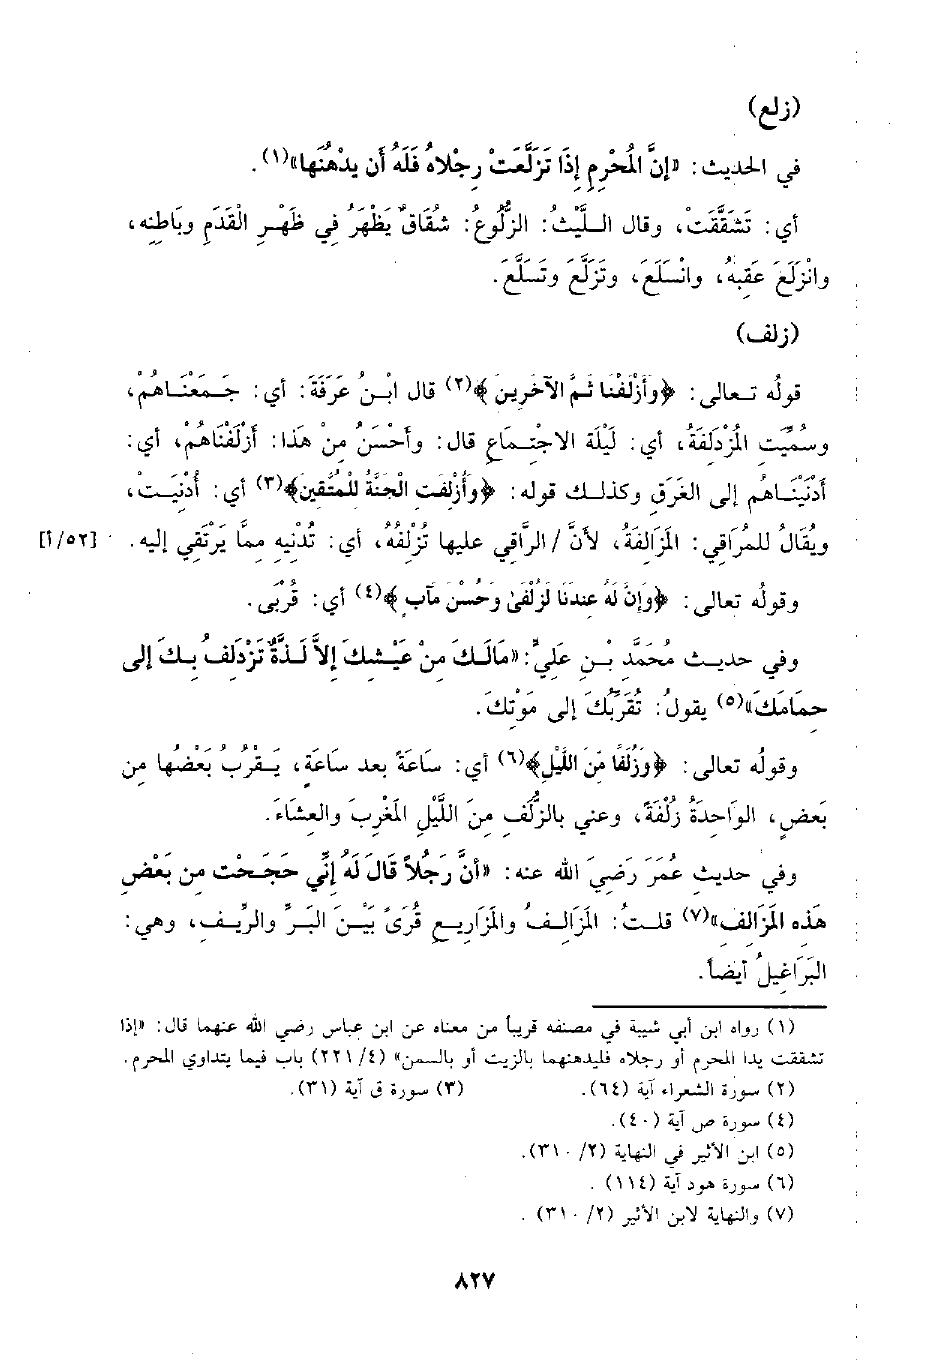 (زلع)
في الحديث: «إنَّ المُحْرِمِ إِذَا تَزَلَّعَتْ رِجْلاهُ فَلَهُ أَن يدْهُنَها»(١).
أي: تَشَقَّقَتْ، وقال اللَّيْثُ: الزُّلُوعُ: شُقَاقٌ يَظْهَرُ فِي ظَهْرِ الْقَدَمِ وبَاطِنِه،
وانْزَلَعَ عَقِبهُ، وانْسَلَعَ، وتَزَلَّعَ وتَسَلَّعَ.
(زلف)
قولُه تعالى: ﴿وَأَزْلَفْنا ثَمَّ الآخَرِينَ﴾(٢) قال ابْنُ عَرَفَةَ: أي: جَمَعْنَاهُمْ،
وسُمِّيَت المُزْدَلِفَةُ، أي: لَيْلَة الاجْتِمَاعِ قال: وأَحْسَنُ مِنْ هَذَا: أَزْلَفْنَاهُمْ، أي:
أدْنَيْنَاهُم إلى الغَرَقِ وكذلك قوله: ﴿وَأُزْلِفَت الجَنَّةُ للمُتَّقِين﴾(٣) أي: أُدْنِيَتْ،
ويُقَالُ للمَرَاقي: المَزَالِفَةُ، لأنَّ / الرَّاقِي عليها تُزْلِفُهُ، أي: تُدْنِيهِ مِمَّا يَرْتَقِي إليه. [٥٢/أ]
وقولُه تعالى: ﴿وَإِنَّ لَهُ عِندَنَا لَزُلْفَىٰ وَحُسْنَ مآب﴾(٤) أي: قُرْبَى.
وفي حديث مُحَمَّد بْنِ عَلِيٍّ: «مَالَكَ مِنْ عَيْشِكَ إِلاَّ لَذَّةٌ تَزْدَلِفُ بِكَ إلى
حِمَامَكَ»(٥) يقولُ: تُقَرِّبُكَ إلى مَوْتِكَ.
وقولُه تعالى: ﴿وَزُلَفًا مِّنَ اللَّيْلِ﴾(٦) أي: سَاعَةً بعد سَاعَةٍ، يَقْرُبُ بَعْضُها مِن
بَعضٍ، الوَاحِدَةُ زُلْفَةٌ، وعني بالزُّلَفِ مِنَ اللَّيْلِ المَغْرِبَ والعِشَاءَ.
وفي حديثِ عُمَرَ رَضِيَ الله عنه: «أَنَّ رَجُلاً قَالَ لَهُ إِنِّي حَجَجْت مِن بَعْضِ
هَذِه المَزَالِفِ»(٧) قلتُ: المَزَالِفُ والمَزَارِيعِ قُرَىً بَيْنَ البَرِّ والرِّيف، وهي:
البَرَاغِيلُ أيضاً.
(١) رواه ابن أبي شيبة في مصنفه قريباً من معناه عن ابن عباس رضي الله عنهما قال: «إذا
تشققت يدا المحرم أو رجلاه فليدهنهما بالزيت أو بالسمن» (٤/ ٢٢١) باب فيما يتداوي المحرم.
(٢) سورة الشعراء آية (٦٤). (٣) سورة ق آية (٣١).
(٤) سورة ص آية (٤٠).
(٥) ابن الأثير في النهاية (٢/ ٣١٠).
(٦) سورة هود آية (١١٤) .
(٧) والنهاية لابن الأثير (٢/ ٣١٠) .
٨٢٧